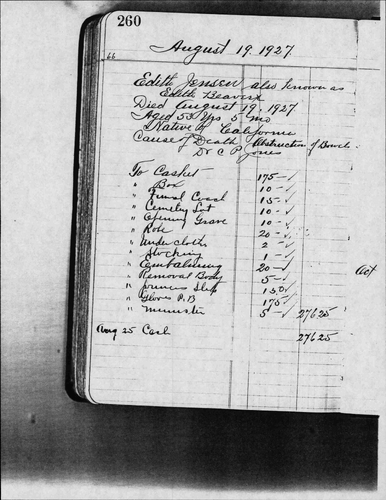 260
66
August 19, 1927
Edith Jensen also known as
Edith Beaver
Died August 19, 1927
Aged 53 Yrs 5 mo
Native of California
Cause of Death Obstruction of Bowels
Dr C P Jones
To Casket 175 -
" Box 10 -
" Funeral Coach 15 -
" Cemetery Lot 10 -
" Opening Grave 10 -
" Robe 20 -
" Underclothes 2 -
" Stocking 1 -
" Embalming 20 -
" Removal Body 5 -
" Slip 1 50
" Gloves P.B 1 75
" Minister 5 - 276 25
Aug 25 Cash 276 25
Oct